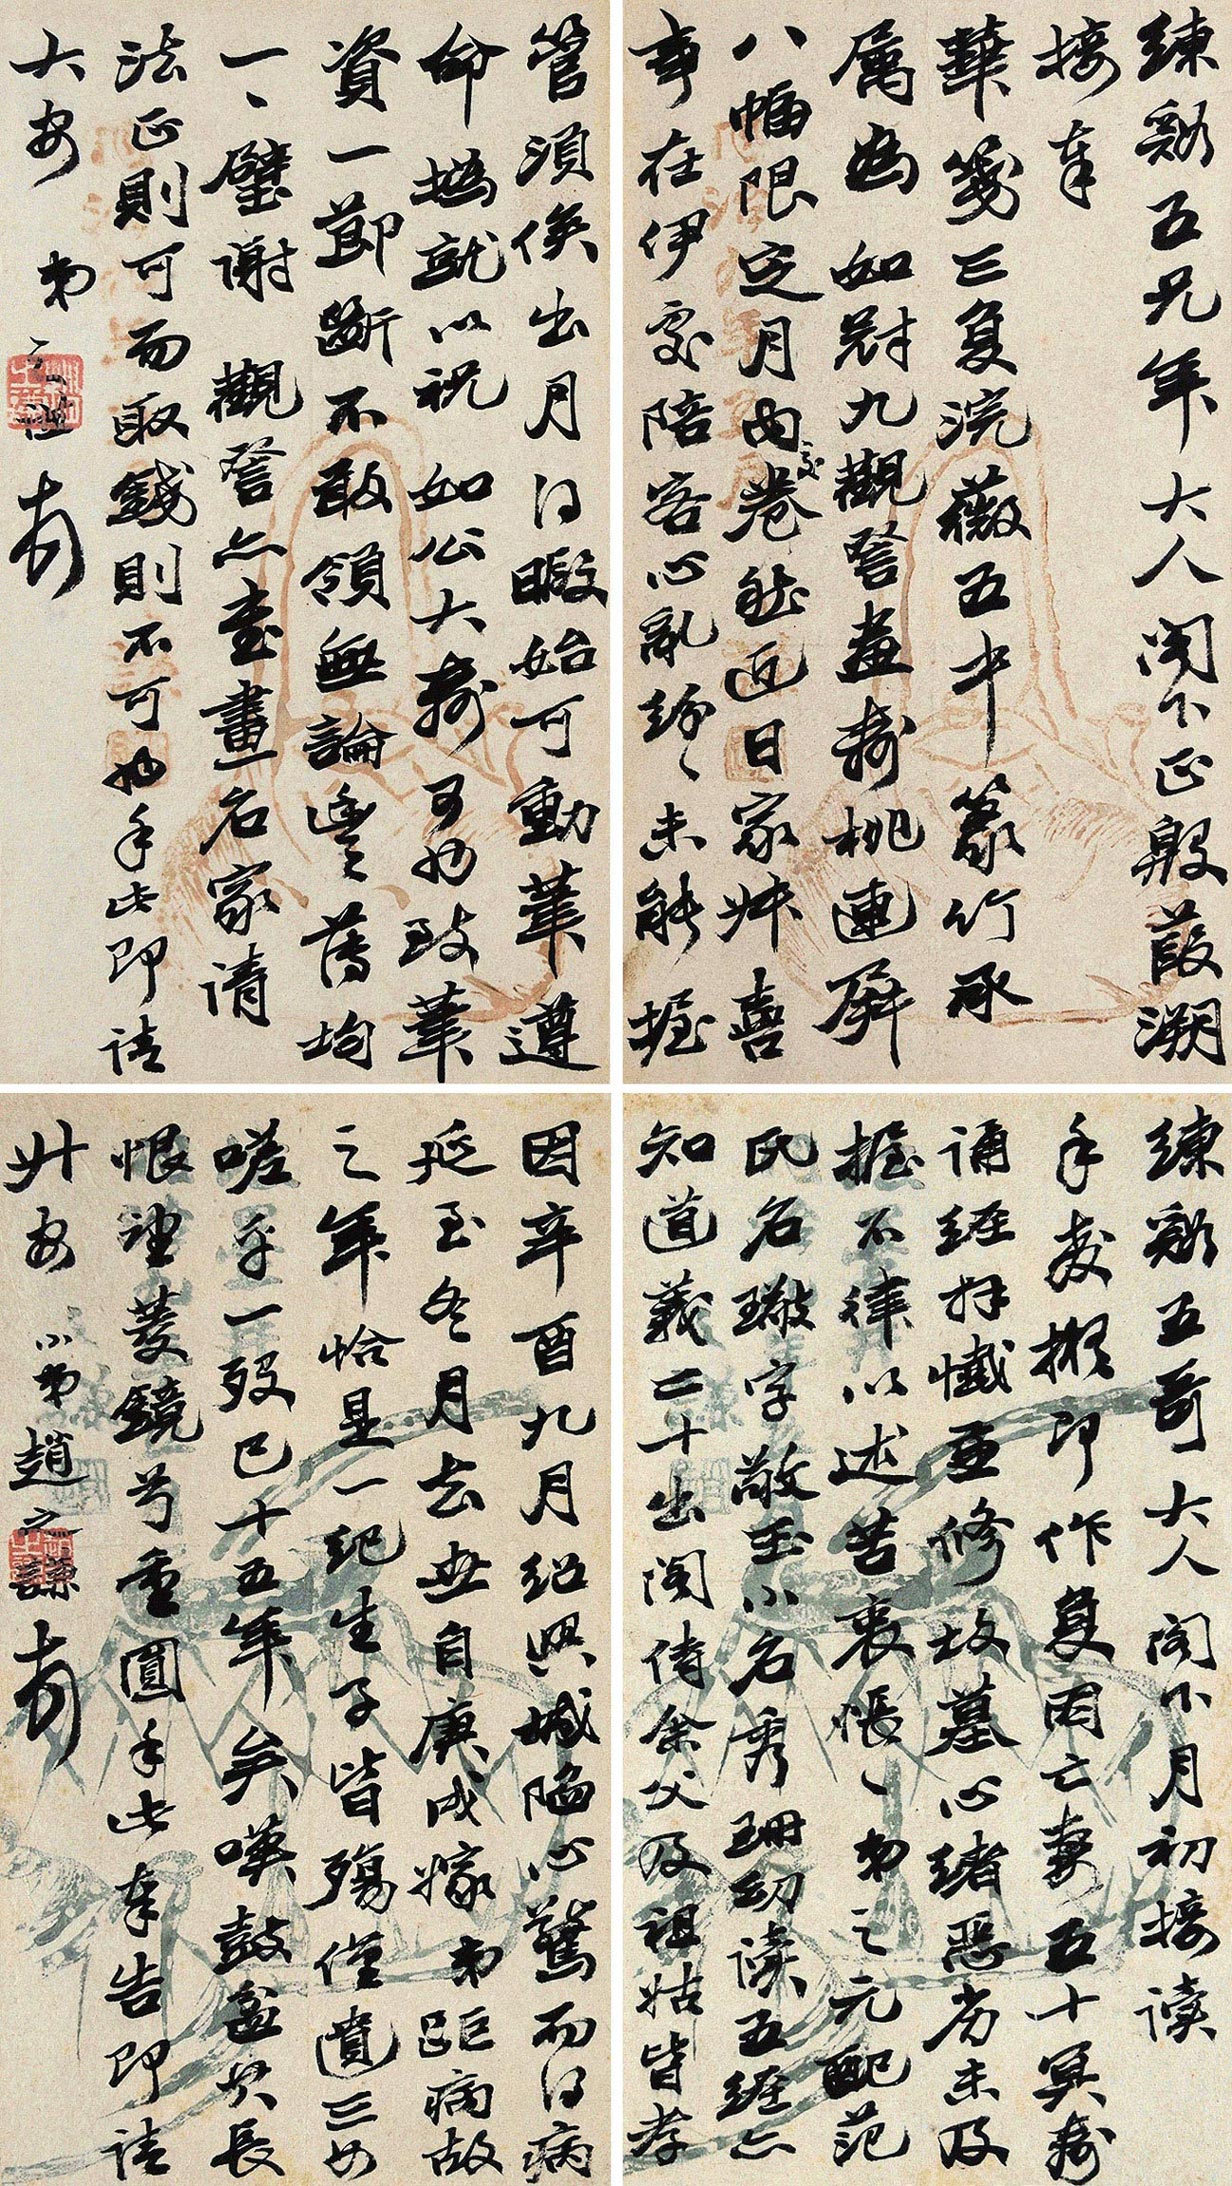 練谿五兄年大人閣下正殷葭溯
接奉
華箋三复浣薇五中篆竹承
屬為 如冠九觀詧畫壽桃連屏
八幅限定月內交卷能近日家姊喜
事在伊處陪客心亂紛〻未能握
管須俟出月得暇始可動筆遵
命撝就以祝 如公大壽可也致筆
資一節斷不敢領無論豐薄均
一〻璧謝 觀詧亦書畫名家請
法正則可而取錢則不可也手此即請
大安 弟之謙頓首
練谿五哥大人閣下月初接讀
手教擬即作复因亡妻五十冥壽
誦經拜懺並修故墓心緒惡劣未及
握不律以述苦衷悵〻弟之元配范
氏名璥字敬玉小名秀珊幼讀五經亦
知道義二十出閣侍余父及祖姑皆孝
因辛酉九月紹興城陷心驚而得病
延至冬月去世自庚戌嫁弟距病故
之年恰是一紀生子皆殤僅遺三女
嗟乎一歿已十五年矣嘆鼓盆其長
恨望菱鏡兮重圓手此奉告即請
升安 小弟趙之謙頓首